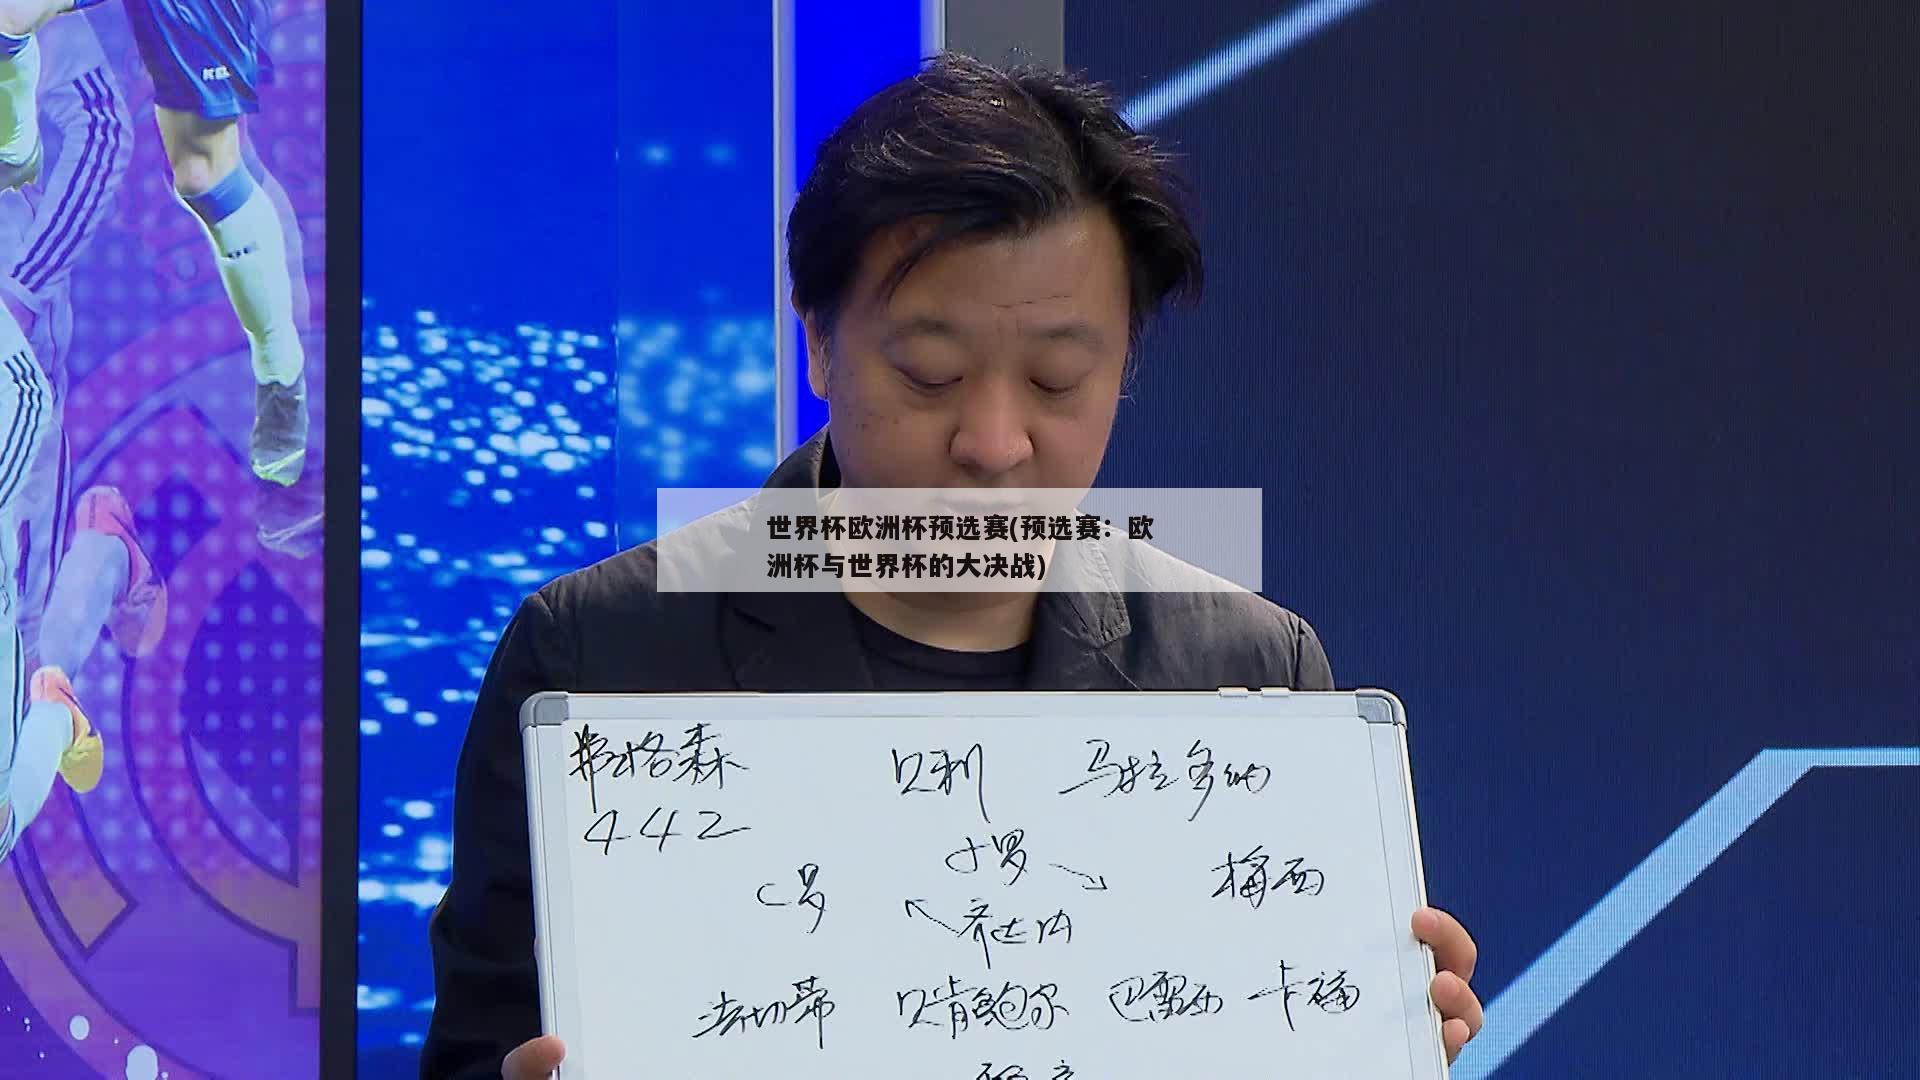 世界杯欧洲杯预选赛(预选赛：欧
洲杯与世界杯的大决战)
弗格森 贝利 马拉多纳
442
C罗 小罗 梅西
齐达内
法切蒂 贝肯鲍尔 巴雷西 卡福